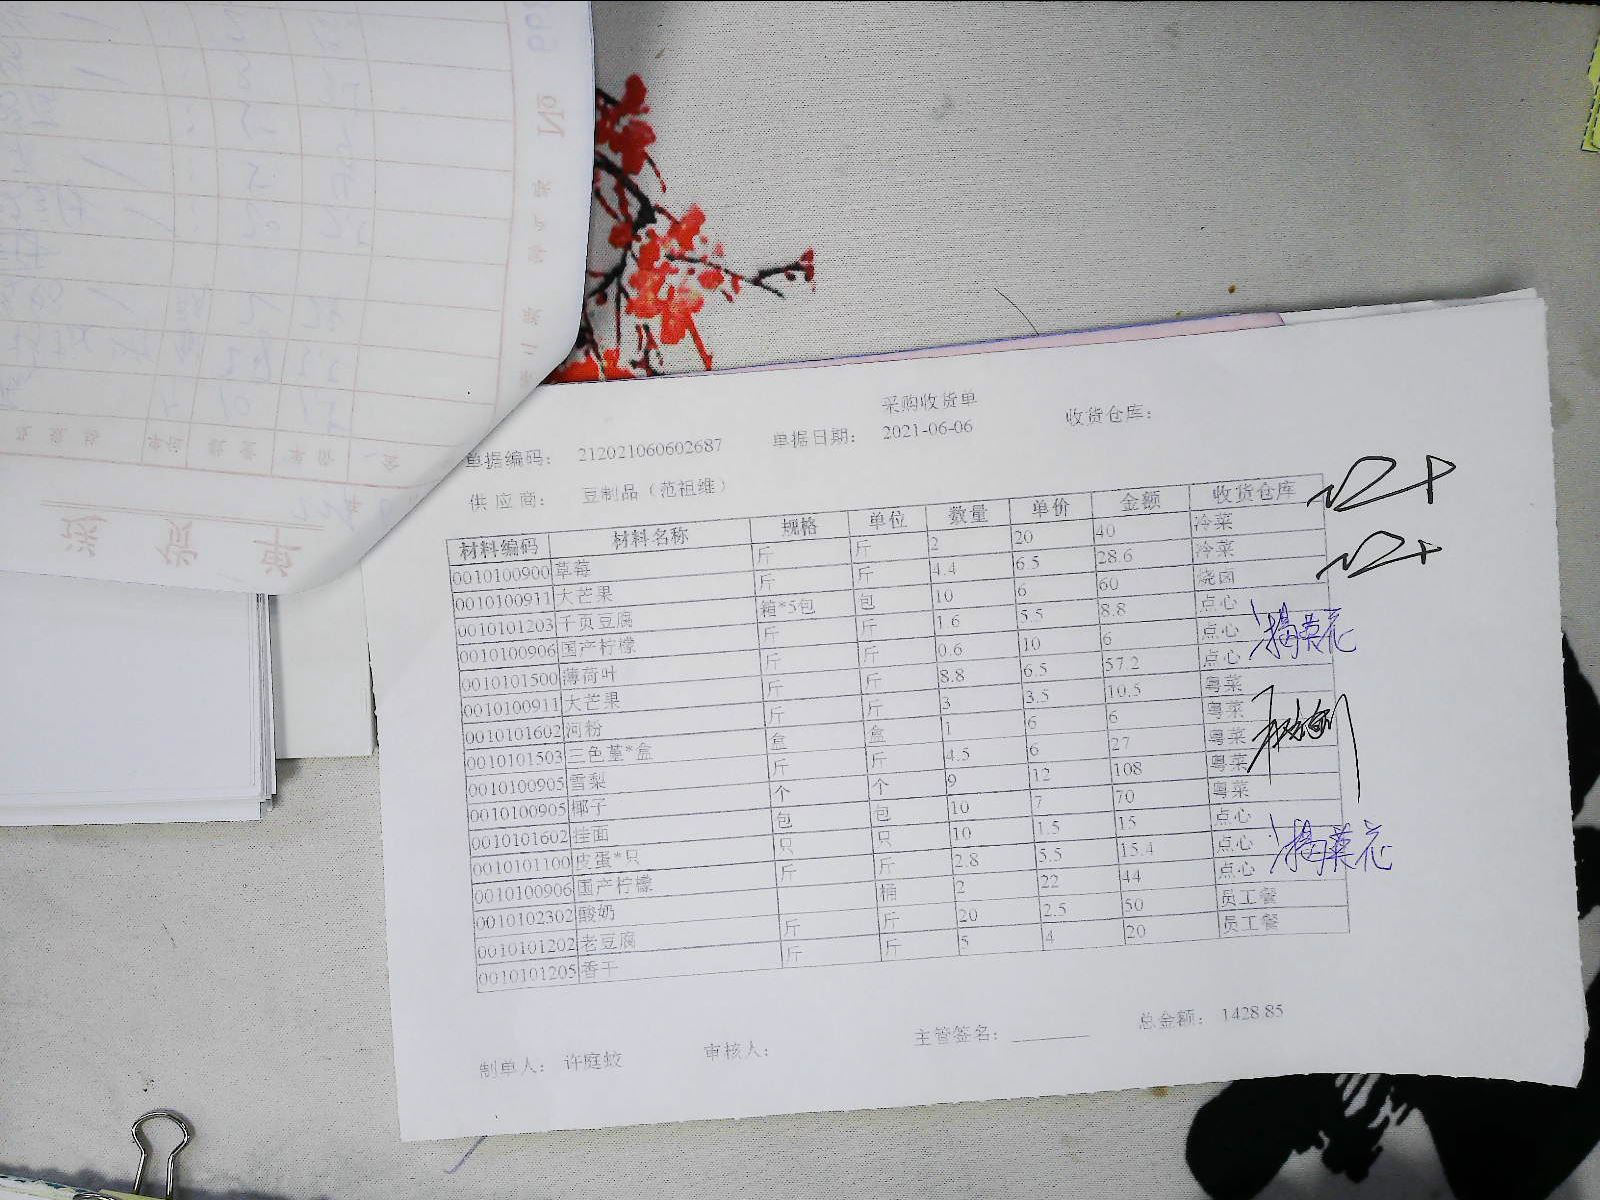 采购收货单
单据编码： 212021060602687 单据日期： 2021-06-06 收货仓库：
供 应 商： 豆制品（范祖维）
材料编码 材料名称 规格 单位 数量 单价 金额 收货仓库
0010100900 草莓 斤 斤 2 20 40 冷菜
0010100911 大芒果 斤 斤 4.4 6.5 28.6 冷菜
0010101203 千页豆腐 箱*5包 包 10 6 60 烧卤
0010100906 国产柠檬 斤 斤 1.6 5.5 8.8 点心
0010101500 薄荷叶 斤 斤 0.6 10 6 点心
0010100911 大芒果 斤 斤 8.8 6.5 57.2 点心
0010101602 河粉 斤 斤 3 3.5 10.5 粤菜
0010101503 三色堇*盒 盒 盒 1 6 6 粤菜
0010100905 雪梨 斤 斤 4.5 6 27 粤菜
0010100905 椰子 个 个 9 12 108 粤菜
0010101602 挂面 包 包 10 7 70 粤菜
0010101100 皮蛋*只 只 只 10 1.5 15 点心
0010100906 国产柠檬 斤 斤 2.8 5.5 15.4 点心
0010102302 酸奶 桶 2 22 44 点心
0010101202 老豆腐 斤 斤 20 2.5 50 员工餐
0010101205 香干 斤 斤 5 4 20 员工餐
制单人： 许庭蛟 审核人： 主管签名： 总金额： 1428.85